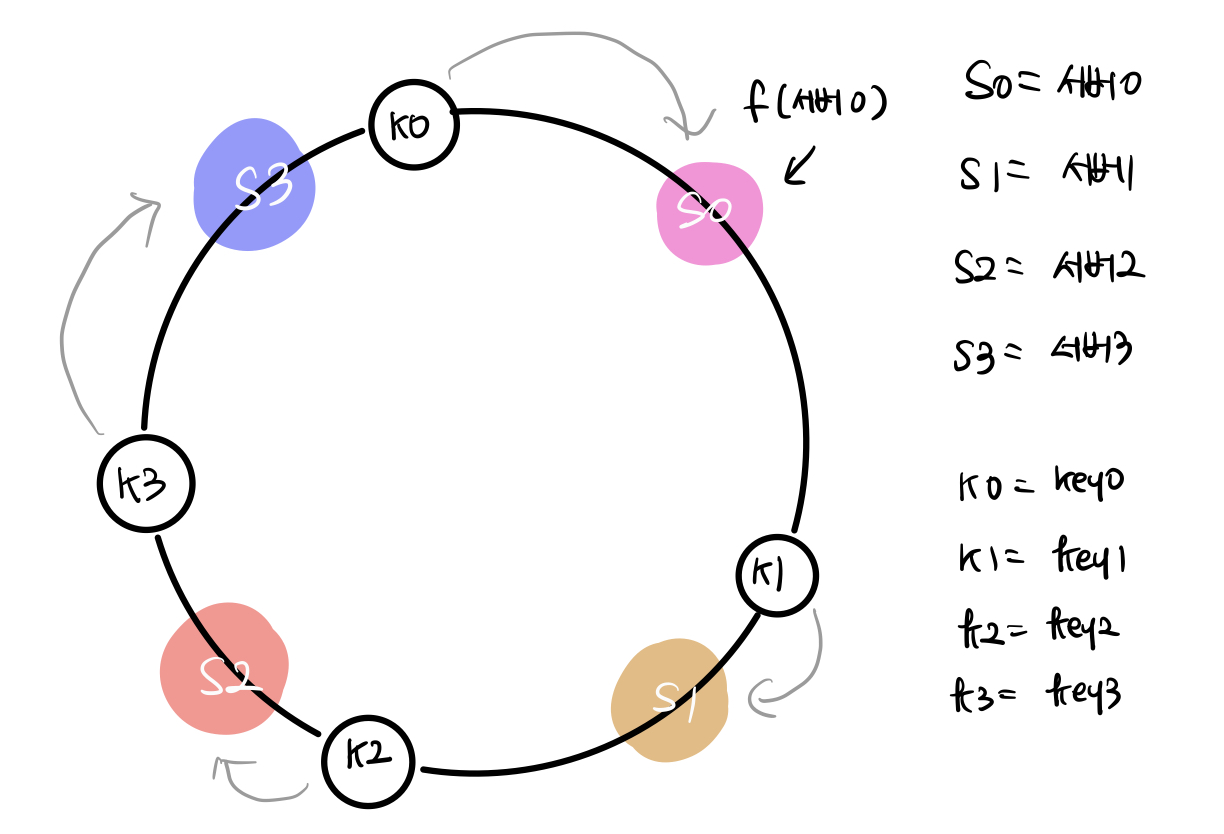 K0
S3
S0
f(서버0)
K3
K1
S2
S1
K2
S0 = 서버0
S1 = 서버1
S2 = 서버2
S3 = 서버3
K0 = key0
K1 = key1
k2 = key2
k3 = key3